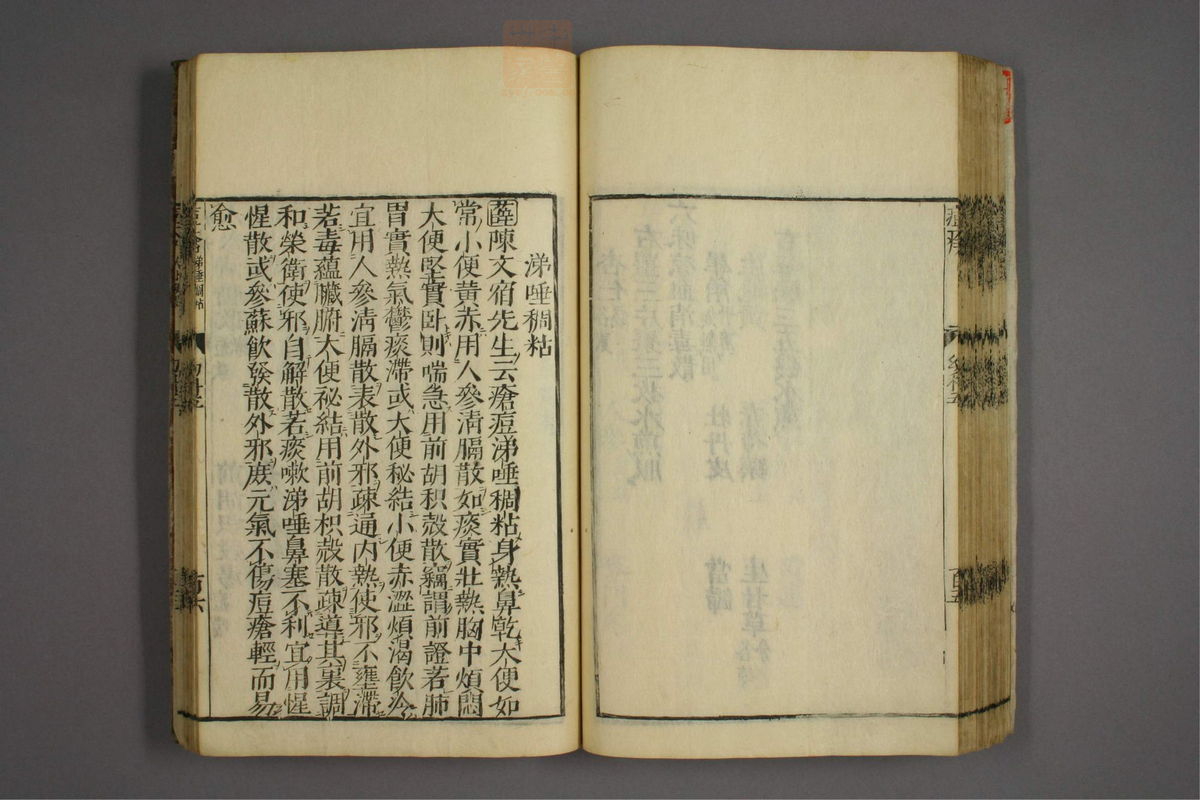 涕唾稠粘
薛陳文宿先生云瘡痘涕唾稠粘身熱鼻乾大便如
常小便黃赤用人參淸膈散如痰實壯熱胸中煩悶
大便堅實卧則喘急用前胡枳殻散竊謂前證若肺
胃實熱氣鬱痰滯或大便秘結小便赤澀煩渴飲冷
宜用人參淸膈散表散外邪疎通内熱使邪不壅滯
若毒蘊臟腑大便祕結用前胡枳殻散疎導其裏調
和榮衛使邪自解散若痰嗽涕唾鼻塞不利宜用惺
惺散或參蘇飲發散外邪庻元氣不傷痘瘡輕而易
愈